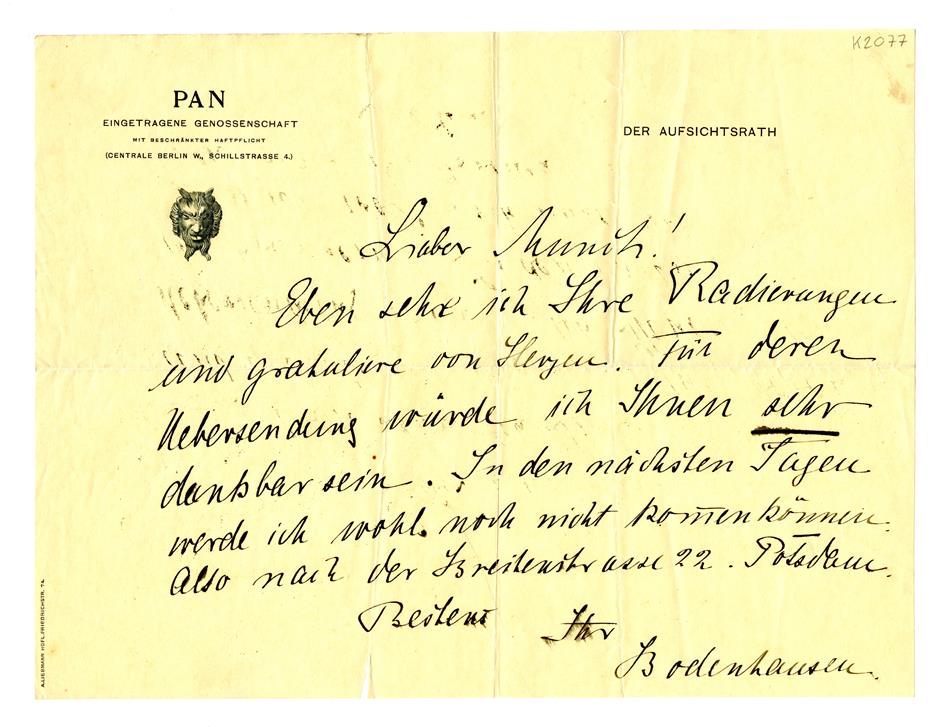 K2077
PAN
EINGETRAGENE GENOSSENSCHAFT
MIT BESCHRÄNKTER HAFTPFLICHT
(CENTRALE BERLIN W., SCHILLSTRASSE 4.)
DER AUFSICHTSRATH
Lieber Munch!
Eben sehe ich Ihre Radierungen
und gratuliere von Herzen. Für deren
Uebersendung würde ich Ihnen sehr
dankbar sein. In den nächsten Tagen
werde ich wohl noch nicht kom̄en können.
Also nach der Breitenstrasse 22. Potsdam.
Bestens Ihr
Bodenhausen.
A. LIEBMANN HOFL. FRIEDRICHSTR. 74